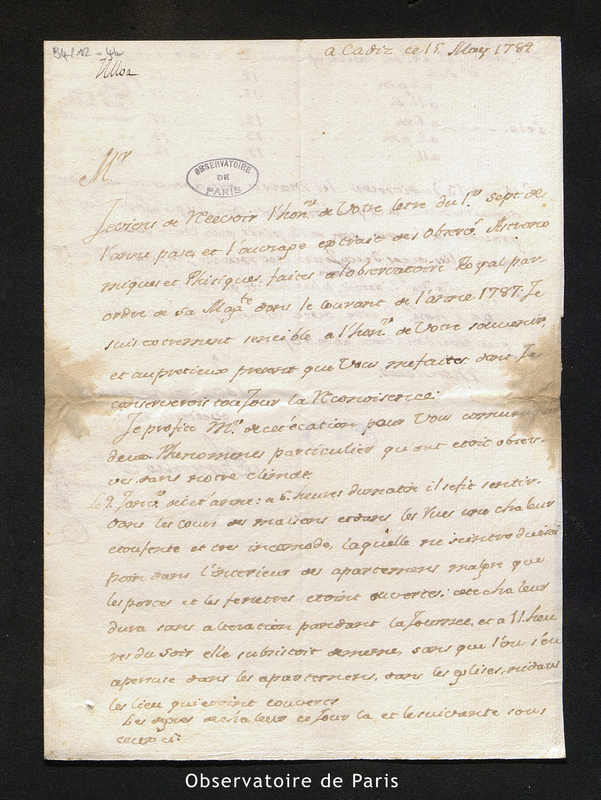 B4/12 - 46
Ulloa
a Cadiz ce 15 May 1789
Mr
OBSERVATOIRE
DE
PARIS
Je viens de Recevoir l'honr de Votre letre du 1er Sept. de
l'anne pase, et l'ouvrage extrait des Observs Astrono
miques et Phisiques, faites a l'observatoire Royal par
ordre de sa Majte dans le courant de l'anne 1787. Je
suis extremement sencible a l'honr de Votre souvenir,
et au pretieux present que Vous me faites dont Je
conserverais toujour la Reconoisence.
Je profite Mr de cet ocation pour Vous comuniquer
deux Phenomenes particulier qui ont etoit obser-
ves dans notre climat.
Le 9 Janr de cet anne: a 6 heures du matin il se fit sentir
dans les cours des maisons et dans les Rues une chaleur
etoufente et tres incomode, laquelle ne s'eintroduisoi
poin dans l'interieur des apartemens malgre que
les portes et les fenetres etoint ouvertes: cete chaleur
dura sans alteration pandant la Journee, et a 11 heu
res du soir elle subsistoit de meme, sans que l'on s'en
aperceuse dans les apartemens, dans les eglises, ni dans
les lieu qui etoint couverts
Les degres de chaleur ce Jour la et le suivante sous
ceux ci:
Observatoire de Paris